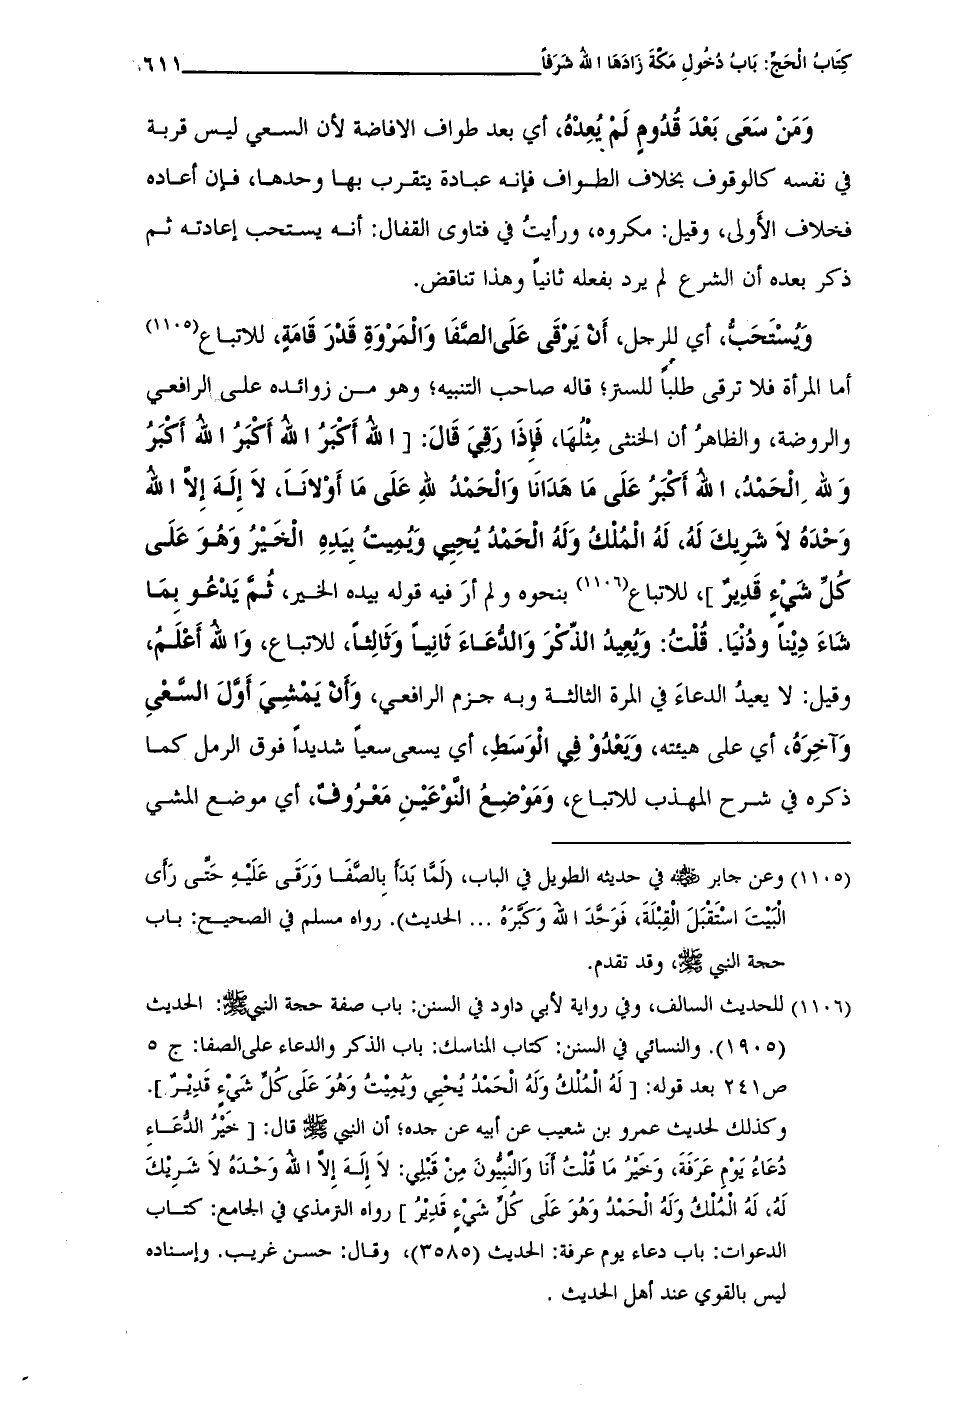 كِتَابُ الْحَجِّ: بَابُ دُخُولِ مَكَّةَ زَادَهَا اللهُ شَرَفاً ٦١١
وَمَنْ سَعَى بَعْدَ قُدُومٍ لَمْ يُعِدْهُ، أي بعد طواف الافاضة لأن السعي ليس قربة
في نفسه كالوقوف بخلاف الطواف فإنه عبادة يتقرب بها وحدها، فإن أعاده
فخلاف الأَولى، وقيل: مكروه، ورأيتُ في فتاوى القفال: أنه يستحب إعادته ثم
ذكر بعده أن الشرع لم يرد بفعله ثانياً وهذا تناقض.
وَيُسْتَحَبُّ، أي للرجل، أَنْ يَرْقَى عَلَى الصَّفَا وَالْمَرْوَةِ قَدْرَ قَامَةٍ، للاتباع(١١٠٥)
أما المرأة فلا ترقى طلباً للستر؛ قاله صاحب التنبيه؛ وهو من زوائده على الرافعي
والروضة، والظاهرُ أن الخنثى مِثْلُهَا، فَإِذَا رَقِيَ قَالَ: [ اللهُ أَكْبَرُ اللهُ أَكْبَرُ اللهُ أَكْبَرُ
وَللهِ الْحَمْدُ، اللهُ أَكْبَرُ عَلَى مَا هَدَانَا وَالْحَمْدُ للهِ عَلَى مَا أَوْلَانَا، لاَ إِلَهَ إِلاَّ اللهُ
وَحْدَهُ لاَ شَرِيكَ لَهُ، لَهُ الْمُلْكُ وَلَهُ الْحَمْدُ يُحْيِي وَيُمِيتُ بِيَدِهِ الْخَيْرُ وَهُوَ عَلَى
كُلِّ شَيْءٍ قَدِيرٌ ]، للاتباع(١١٠٦) بنحوه ولم أرَ فيه قوله بيده الخير، ثُمَّ يَدْعُو بِمَا
شَاءَ دِيْناً ودُنْيَا. قُلْتُ: وَيُعِيدُ الذِّكْرَ وَالدُّعَاءَ ثَانِياً وَثَالِثاً، للاتباع، وَاللهُ أَعْلَمُ،
وقيل: لا يعيدُ الدعاءَ في المرة الثالثة وبه جزم الرافعي، وَأَنْ يَمْشِيَ أَوَّلَ السَّعْيِ
وَآخِرَهُ، أي على هيئته، وَيَعْدُوْ فِي الْوَسَطِ، أي يسعى سعياً شديداً فوق الرمل كما
ذكره في شرح المهذب للاتباع، وَمَوْضِعُ النَّوْعَيْنِ مَعْرُوفٌ، أي موضع المشي
(١١٠٥) وعن جابر ﷺ في حديثه الطويل في الباب، (لَمَّا بَدَأَ بِالصَّفَا وَرَقَى عَلَيْهِ حَتَّى رَأَى
الْبَيْتَ اسْتَقْبَلَ الْقِبْلَةَ، فَوَحَّدَ اللهَ وَكَبَّرَهُ ... الحديث). رواه مسلم في الصحيح: باب
حجة النبي ﷺ، وقد تقدم.
(١١٠٦) للحديث السالف، وفي رواية لأبي داود في السنن: باب صفة حجة النبيﷺ: الحديث
(١٩٠٥). والنسائي في السنن: كتاب المناسك: باب الذكر والدعاء على الصفا: ج ٥
ص٢٤١ بعد قوله: [ لَهُ الْمُلْكُ وَلَهُ الْحَمْدُ يُحْيِي وَيُمِيْتُ وَهُوَ عَلَى كُلِّ شَيْءٍ قَدِيْرٌ ].
وكذلك لحديث عمرو بن شعيب عن أبيه عن جده؛ أن النبي ﷺ قال: [ خَيْرُ الدُّعَاءِ
دُعَاءُ يَوْمِ عَرَفَةَ، وَخَيْرُ مَا قُلْتُ أَنَا وَالنَّبِيُّونَ مِنْ قَبْلِي: لاَ إِلَهَ إِلاَّ اللهُ وَحْدَهُ لاَ شَرِيْكَ
لَهُ، لَهُ الْمُلْكُ وَلَهُ الْحَمْدُ وَهُوَ عَلَى كُلِّ شَيْءٍ قَدِيْرٌ ] رواه الترمذي في الجامع: كتاب
الدعوات: باب دعاء يوم عرفة: الحديث (٣٥٨٥)، وقال: حسن غريب. وإسناده
ليس بالقوي عند أهل الحديث .